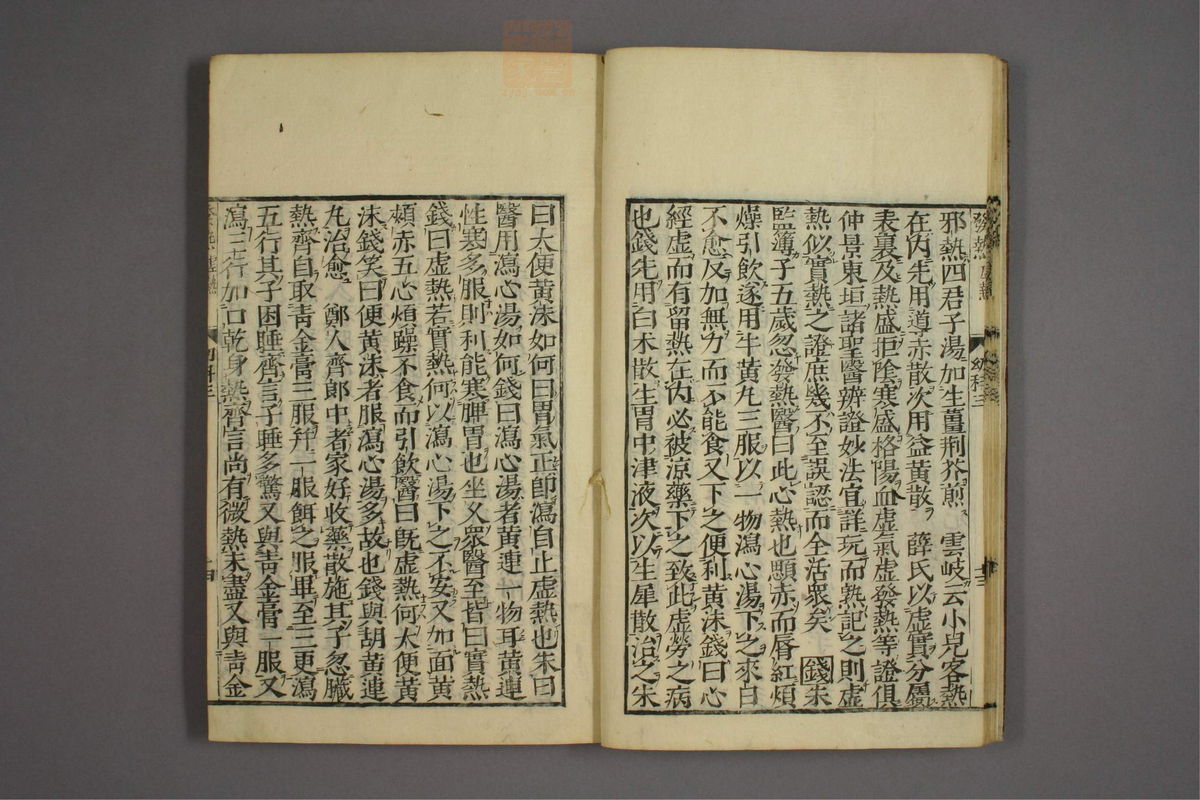 發熱 虛熱 幼科三 十三
邪熱四君子湯加生薑荊芥煎 雲岐云小兒客熱
在內先用導赤散次用益黃散 薛氏以虛實分屬
表裏及熱盛拒陰寒盛格陽血虛氣虛發熱等證俱
仲景東垣諸聖醫辨證妙法宜詳玩而熟記之則虛
熱似實熱之證庶幾不至誤認而全活衆矣 錢朱
監簿子五歲忽發熱醫曰此心熱也顋赤而唇紅煩
燥引飲遂用牛黃丸三服以一物瀉心湯下之來日
不愈反加無力而不能食又下之便利黃沫錢曰心
經虛而有留熱在內必被涼藥下之致此虛勞之病
也錢先用白朮散生胃中津液次以生犀散治之朱
曰大便黃沫如何曰胃氣正卽瀉自止虛熱也朱曰
醫用瀉心湯如何錢曰瀉心湯者黃連一物耳黃連
性寒多服則利能寒脾胃也坐久衆醫至皆曰實熱
錢曰虛熱若實熱何以瀉心湯下之不安又加面黃
頰赤五心煩躁不食而引飲醫曰既虛熱何大便黃
沫錢笑曰便黃沫者服瀉心湯多故也錢與胡黃連
丸治愈 鄭人齊郎中者家好收藥散施其子忽臟
熱齊自取青金膏三服幷一服餌之服畢至三更瀉
五行其子困睡齊言子睡多驚又與青金膏一服又
瀉三行加口乾身熱齊言尚有微熱未盡又與青金
虛熱 幼科三 十四